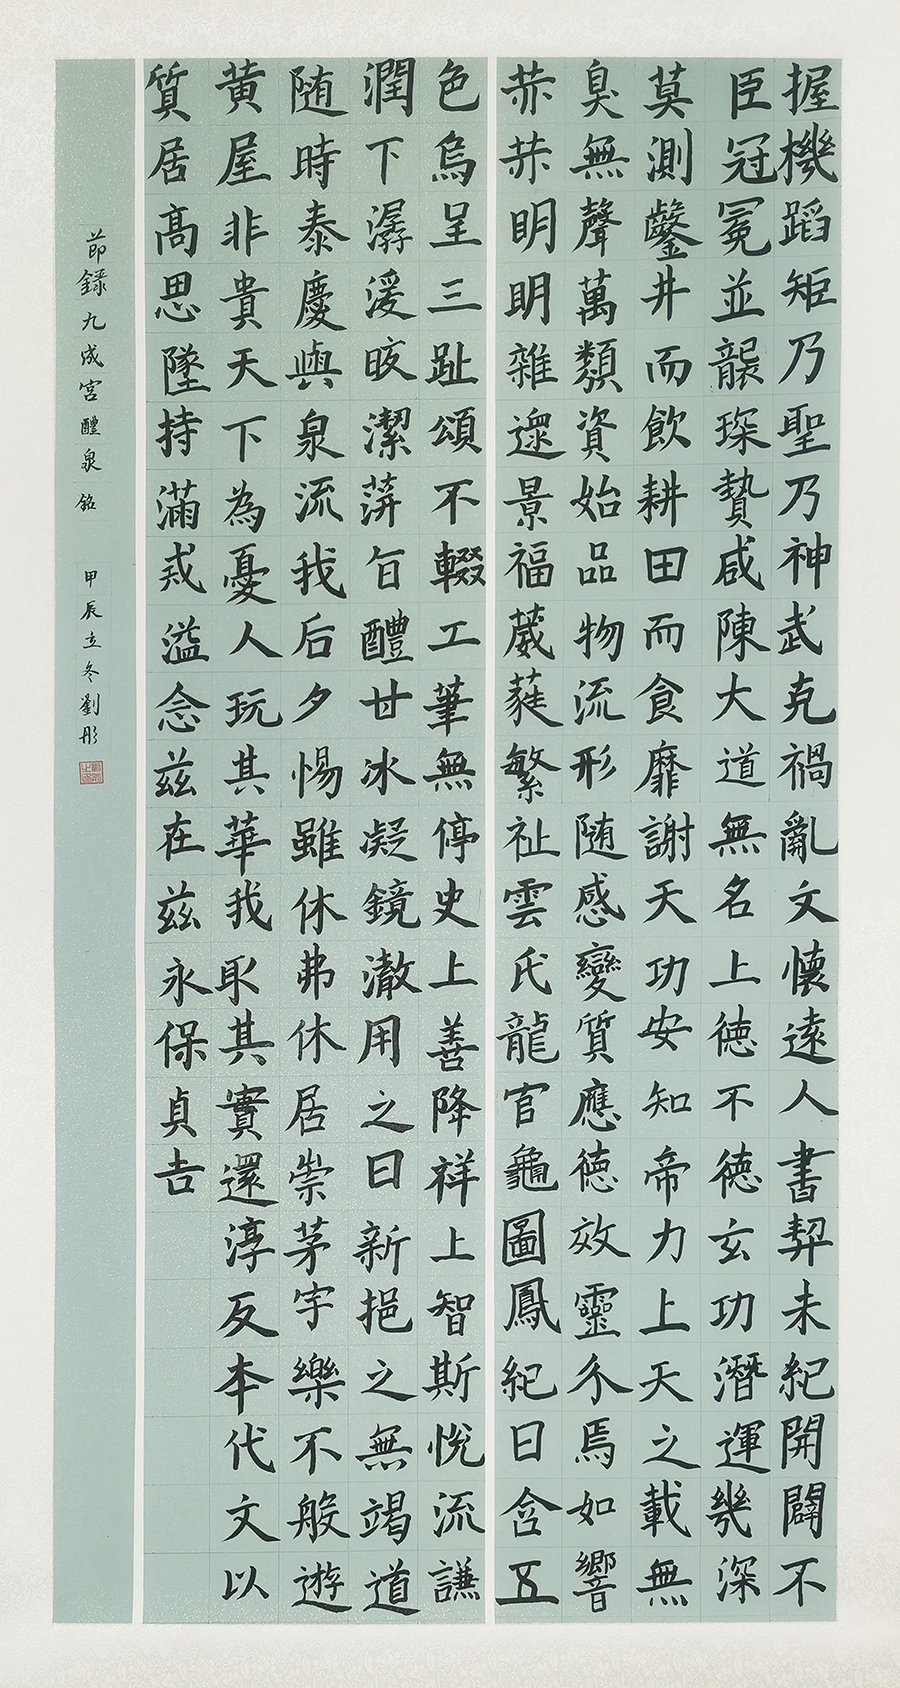 握機蹈矩乃聖乃神武克禍亂文懷遠人書契未紀開闢不
臣冠冕並襲琛贄咸陳大道無名上德不德玄功潛運幾深
莫測鑿井而飲耕田而食靡謝天功安知帝力上天之載無
臭無聲萬類資始品物流形随感變質應德效靈介焉如響
赫赫明明雜遝景福葳蕤繁祉雲氏龍官龜圖鳳紀日含五
色烏呈三趾頌不輟工筆無停史上善降祥上智斯悅流謙
潤下潺湲皎潔蓱旨醴甘冰凝鏡澈用之日新挹之無竭道
随時泰慶與泉流我后夕惕雖休弗休居崇茅宇樂不般遊
黄屋非貴天下為憂人玩其華我取其實還淳反本代文以
質居高思墜持滿戒溢念兹在兹永保貞吉
節錄九成宮醴泉銘 甲辰立冬劉彤